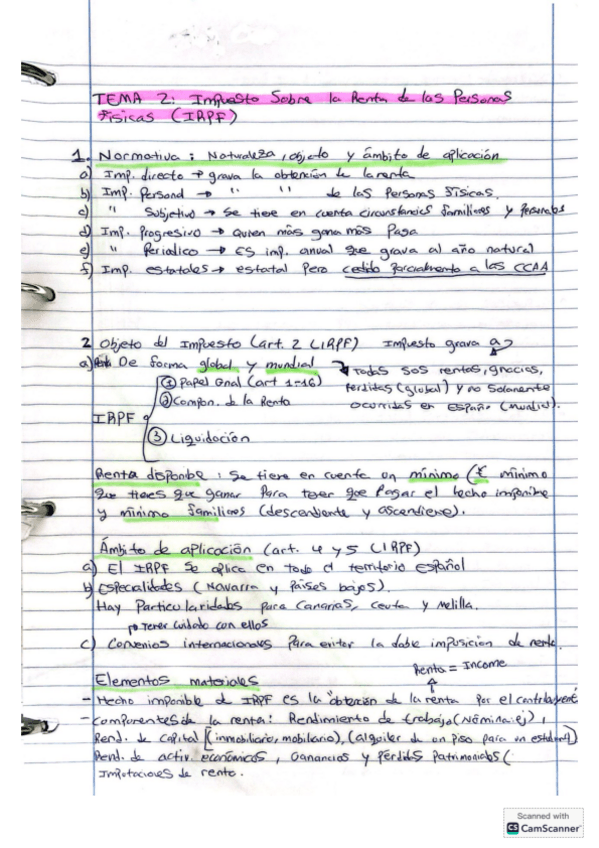 TEMA 2: Impuesto Sobre la Renta de las Personas
Físicas (IRPF)
1. Normativa: Naturaleza, objeto y ámbito de aplicación
a) Imp. directo → grava la obtención de la renta
b) Imp. Personal → " " de las Personas físicas.
c) " Subjetivo → Se tiene en cuenta circunstancias familiares y personales
d) Imp. Progresivo → Quien más gana más Paga
e) " Periodico → Es imp. anual que grava al año natural
f) Imp. estatales → estatal pero cedido parcialmente a las CCAA
2 Objeto del Impuesto (art. 2 LIRPF) Impuesto grava a
a) De forma global y mundial → todas sus rentas, gracias,
① Papel Gnal (art 1-16) perdidas (global) y no solamente
② Compon. de la Renta ocurridas en España (mundial).
IRPF
③ Liquidación
Renta disponible: Se tiene en cuenta un mínimo (€ mínimo
que tienes que ganar para tener que pagar el hecho imponible
y mínimo familiares (descendiente y ascendiere).
Ámbito de aplicación (art. 4 y 5 LIRPF)
a) El IRPF se aplica en todo el territorio español
b) Especialidades (Navarra y Países bajos).
Hay Particularidades para Canarias, Ceuta y Melilla.
→ Tener cuidado con ellos
c) Convenios internacionales para evitar la doble imposición de renta.
Renta = Income
Elementos materiales
- Hecho imponible de IRPF es la "obtención de la renta por el contribuyente
- Componentes de la renta: Rendimiento de trabajo (Nómina: ej),
Rend. de capital [(inmobiliario, mobiliario), (alquiler de un piso para un estudiant)
Rend. de activ. económicos, Ganancias y perdidas patrimoniales (
Imputaciones de renta.
Scanned with
CS CamScanner